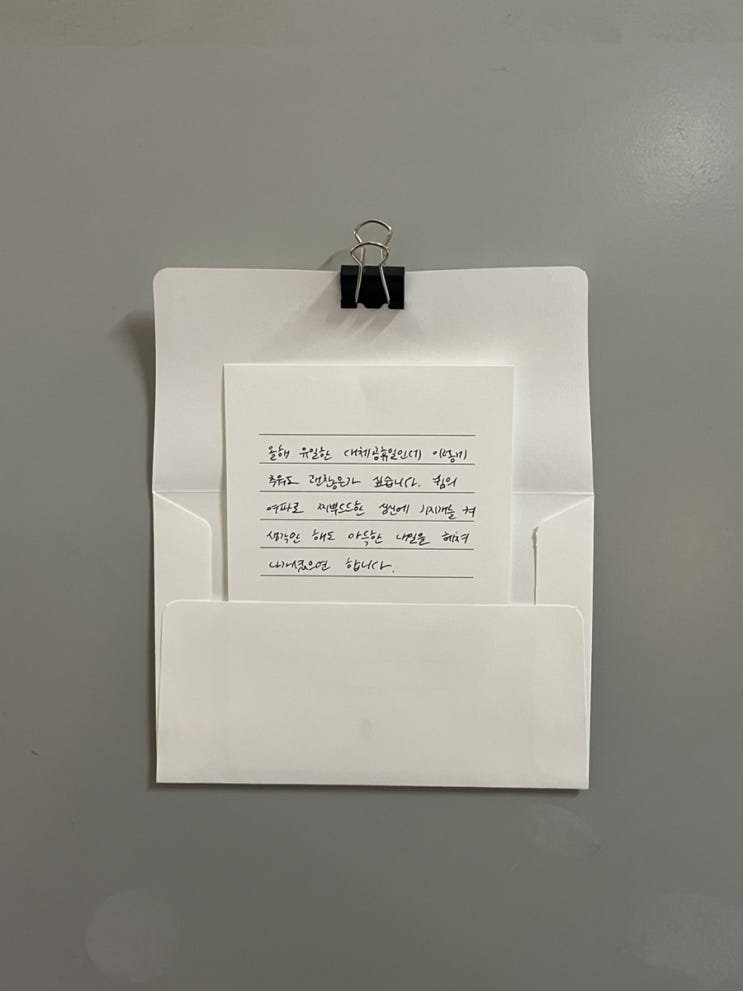 올해 유일한 대체공휴일인데 이렇게
추워도 괜찮은가 싶습니다. 쉼의
여파로 찌뿌드드한 심신에 기지개를 켜
생각만 해도 아득한 내일을 헤쳐
나가셨으면 합니다.